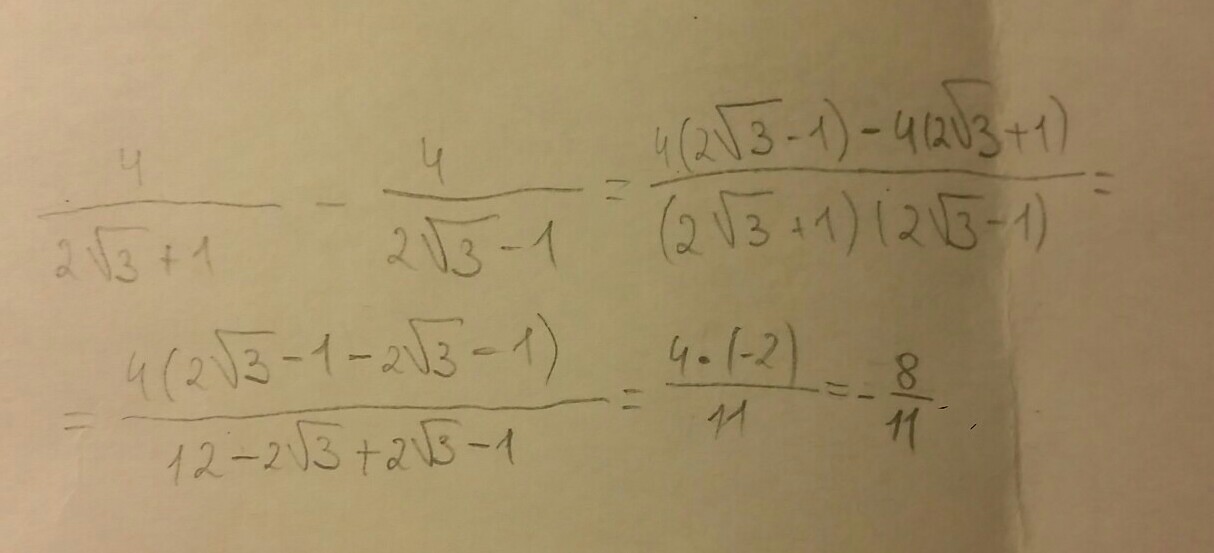 4/(2√3+1) - 4/(2√3-1) = (4(2√3-1)-4(2√3+1))/((2√3+1)(2√3-1)) =
= (4(2√3-1-2√3-1))/(12-2√3+2√3-1) = (4·(-2))/11 = -8/11.